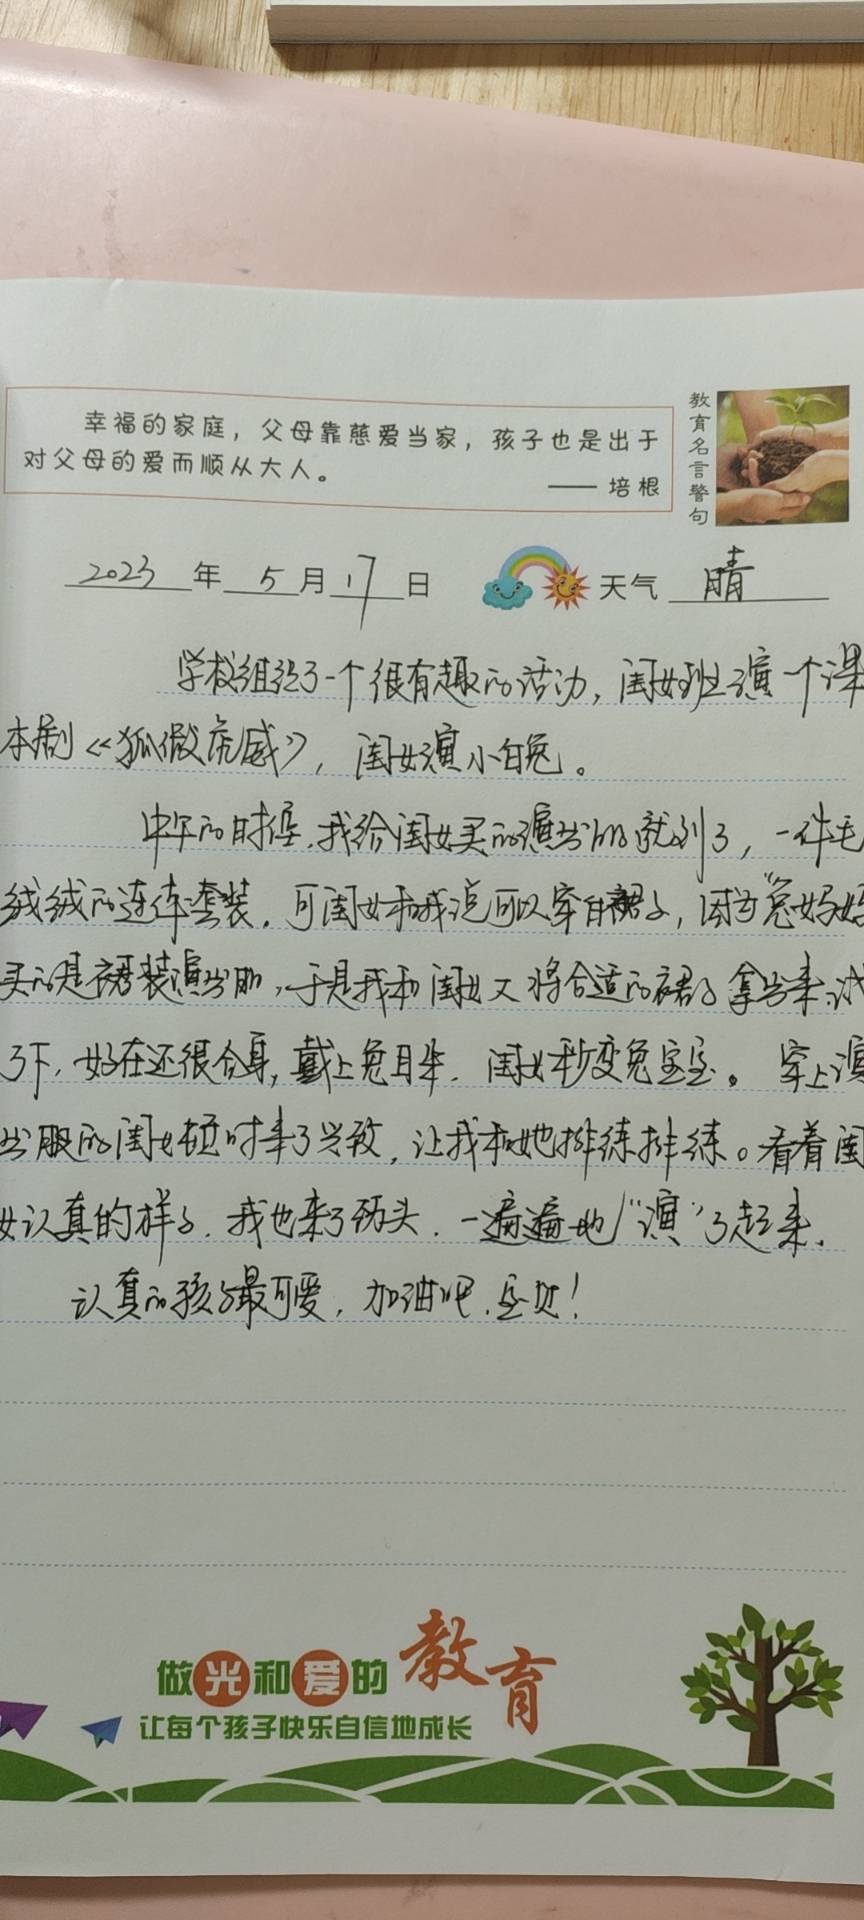 幸福的家庭，父母靠慈爱当家，孩子也是出于
对父母的爱而顺从大人。
—— 培根
教育名言警句
2023年5月17日 天气 晴
学校组织了一个很有趣的活动，闺女班上演一个课
本剧《狐假虎威》，闺女演小白兔。
中午的时候，我给闺女买的演出服就到了，一件毛
绒绒的连体套装，可闺女和我说可以穿白裙子，因为“兔妈妈
买的是裙装演出服，于是我和闺女又将合适的裙子拿出来试
了下，好在还很合身，戴上兔耳朵，闺女秒变兔宝宝。穿上演
出服的闺女顿时来了兴致，让我和她排练排练。看着闺
女认真的样子，我也来了劲头，一遍遍地“演”了起来。
认真的孩子最可爱，加油吧，宝贝！
做光和爱的教育
让每个孩子快乐自信地成长